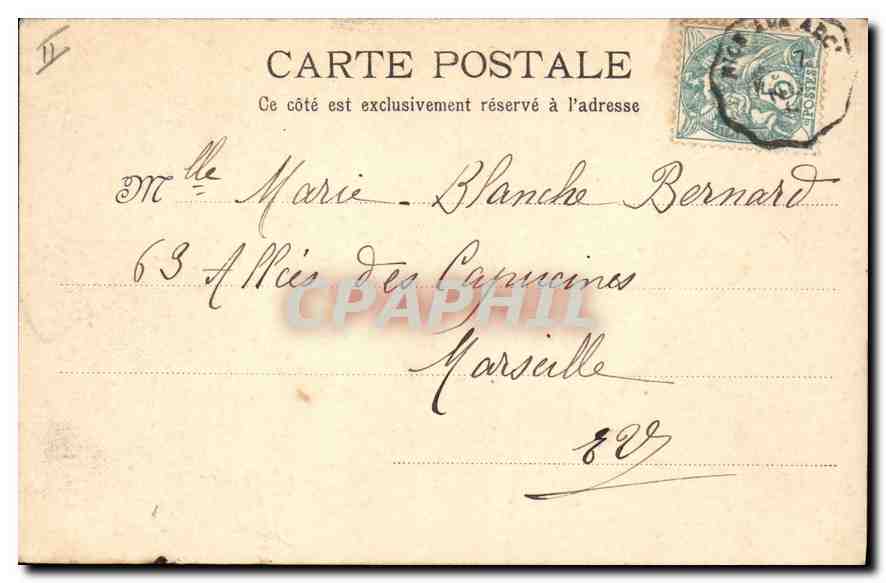 II
CARTE POSTALE
Ce côté est exclusivement réservé à l'adresse
POSTES
Mlle Marie-Blanche Bernard
63 Allées des Capucines
CPAPHIL
Marseille
EV